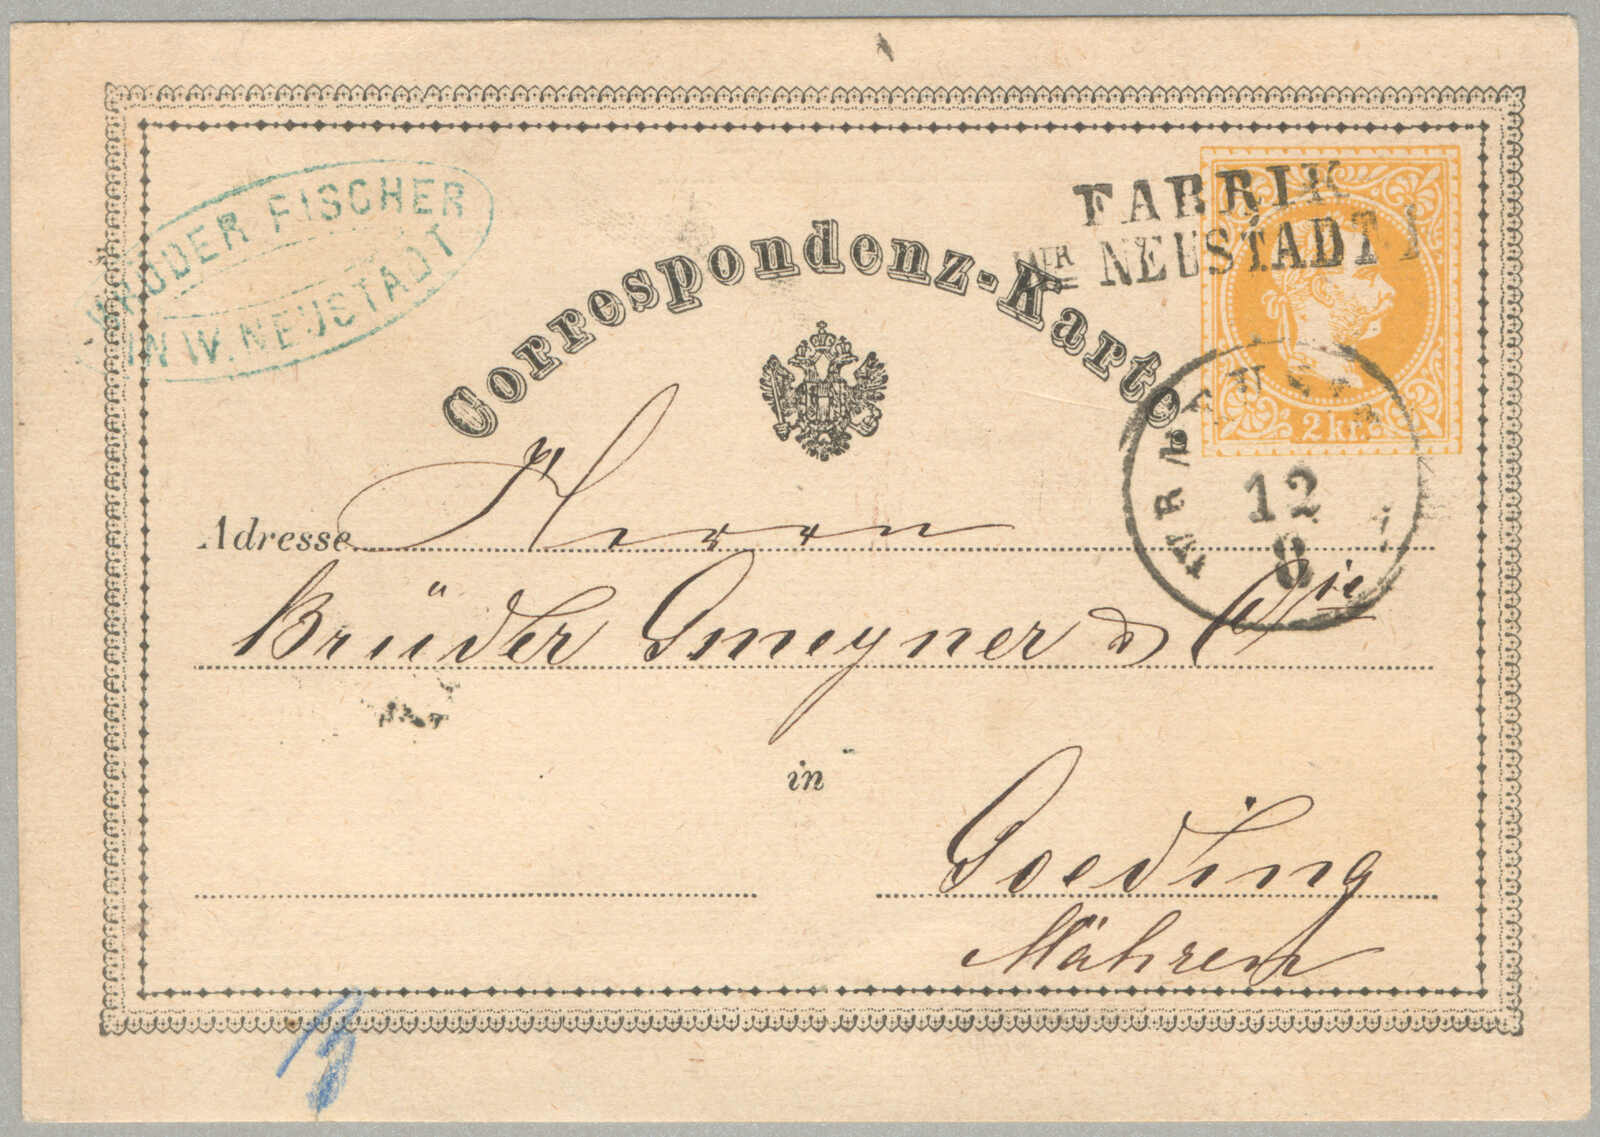 BRÜDER FISCHER
IN W. NEUSTADT
FABRIK
WR NEUSTADT
Correspondenz-Karte
2 kr.
WR. NEUSTADT
12
8
Adresse Herrn
Brüder Gmeyner & Cie
in
Goeding
Mähren